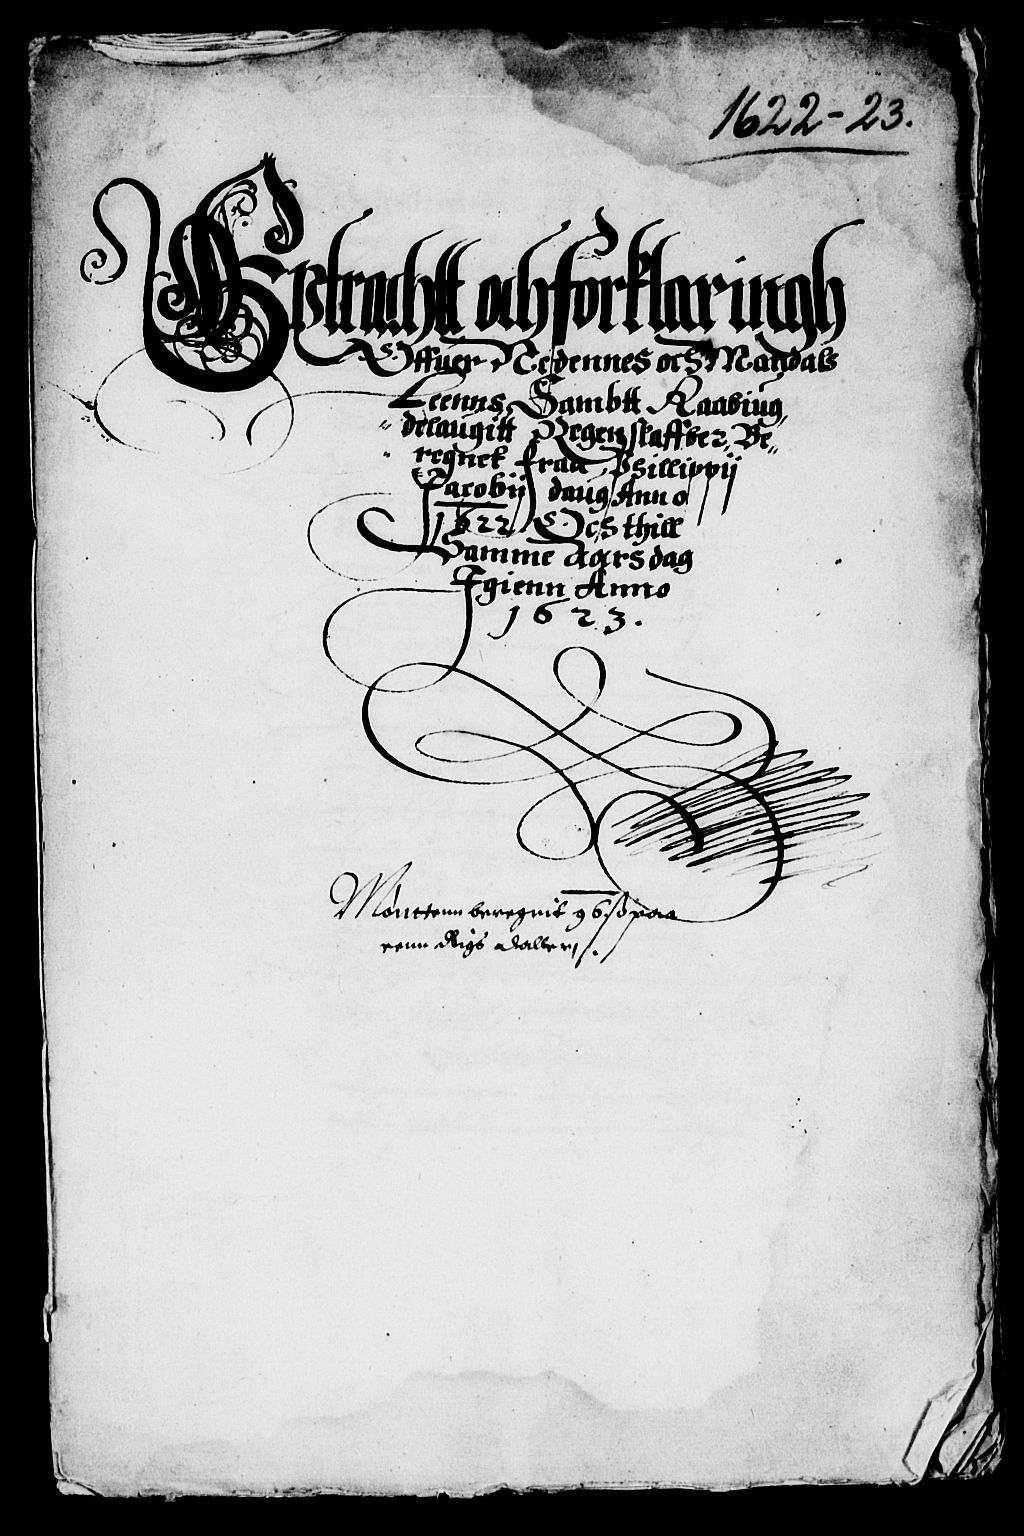 1622-23.
Extrachtt och forklaringh
Offuer Nedennes och Mandals
Leenns, Sambtt Raabiug,,
,,delaugitt Regenskaffber, Be,,
,,regnet fraa Phillippij
Jacobij daug Anno
1622 Och thill
Samme aars dag
Igienn Anno
1623.
Mønttenn beregnit 96 ß paa
eenn Rigs daller /.